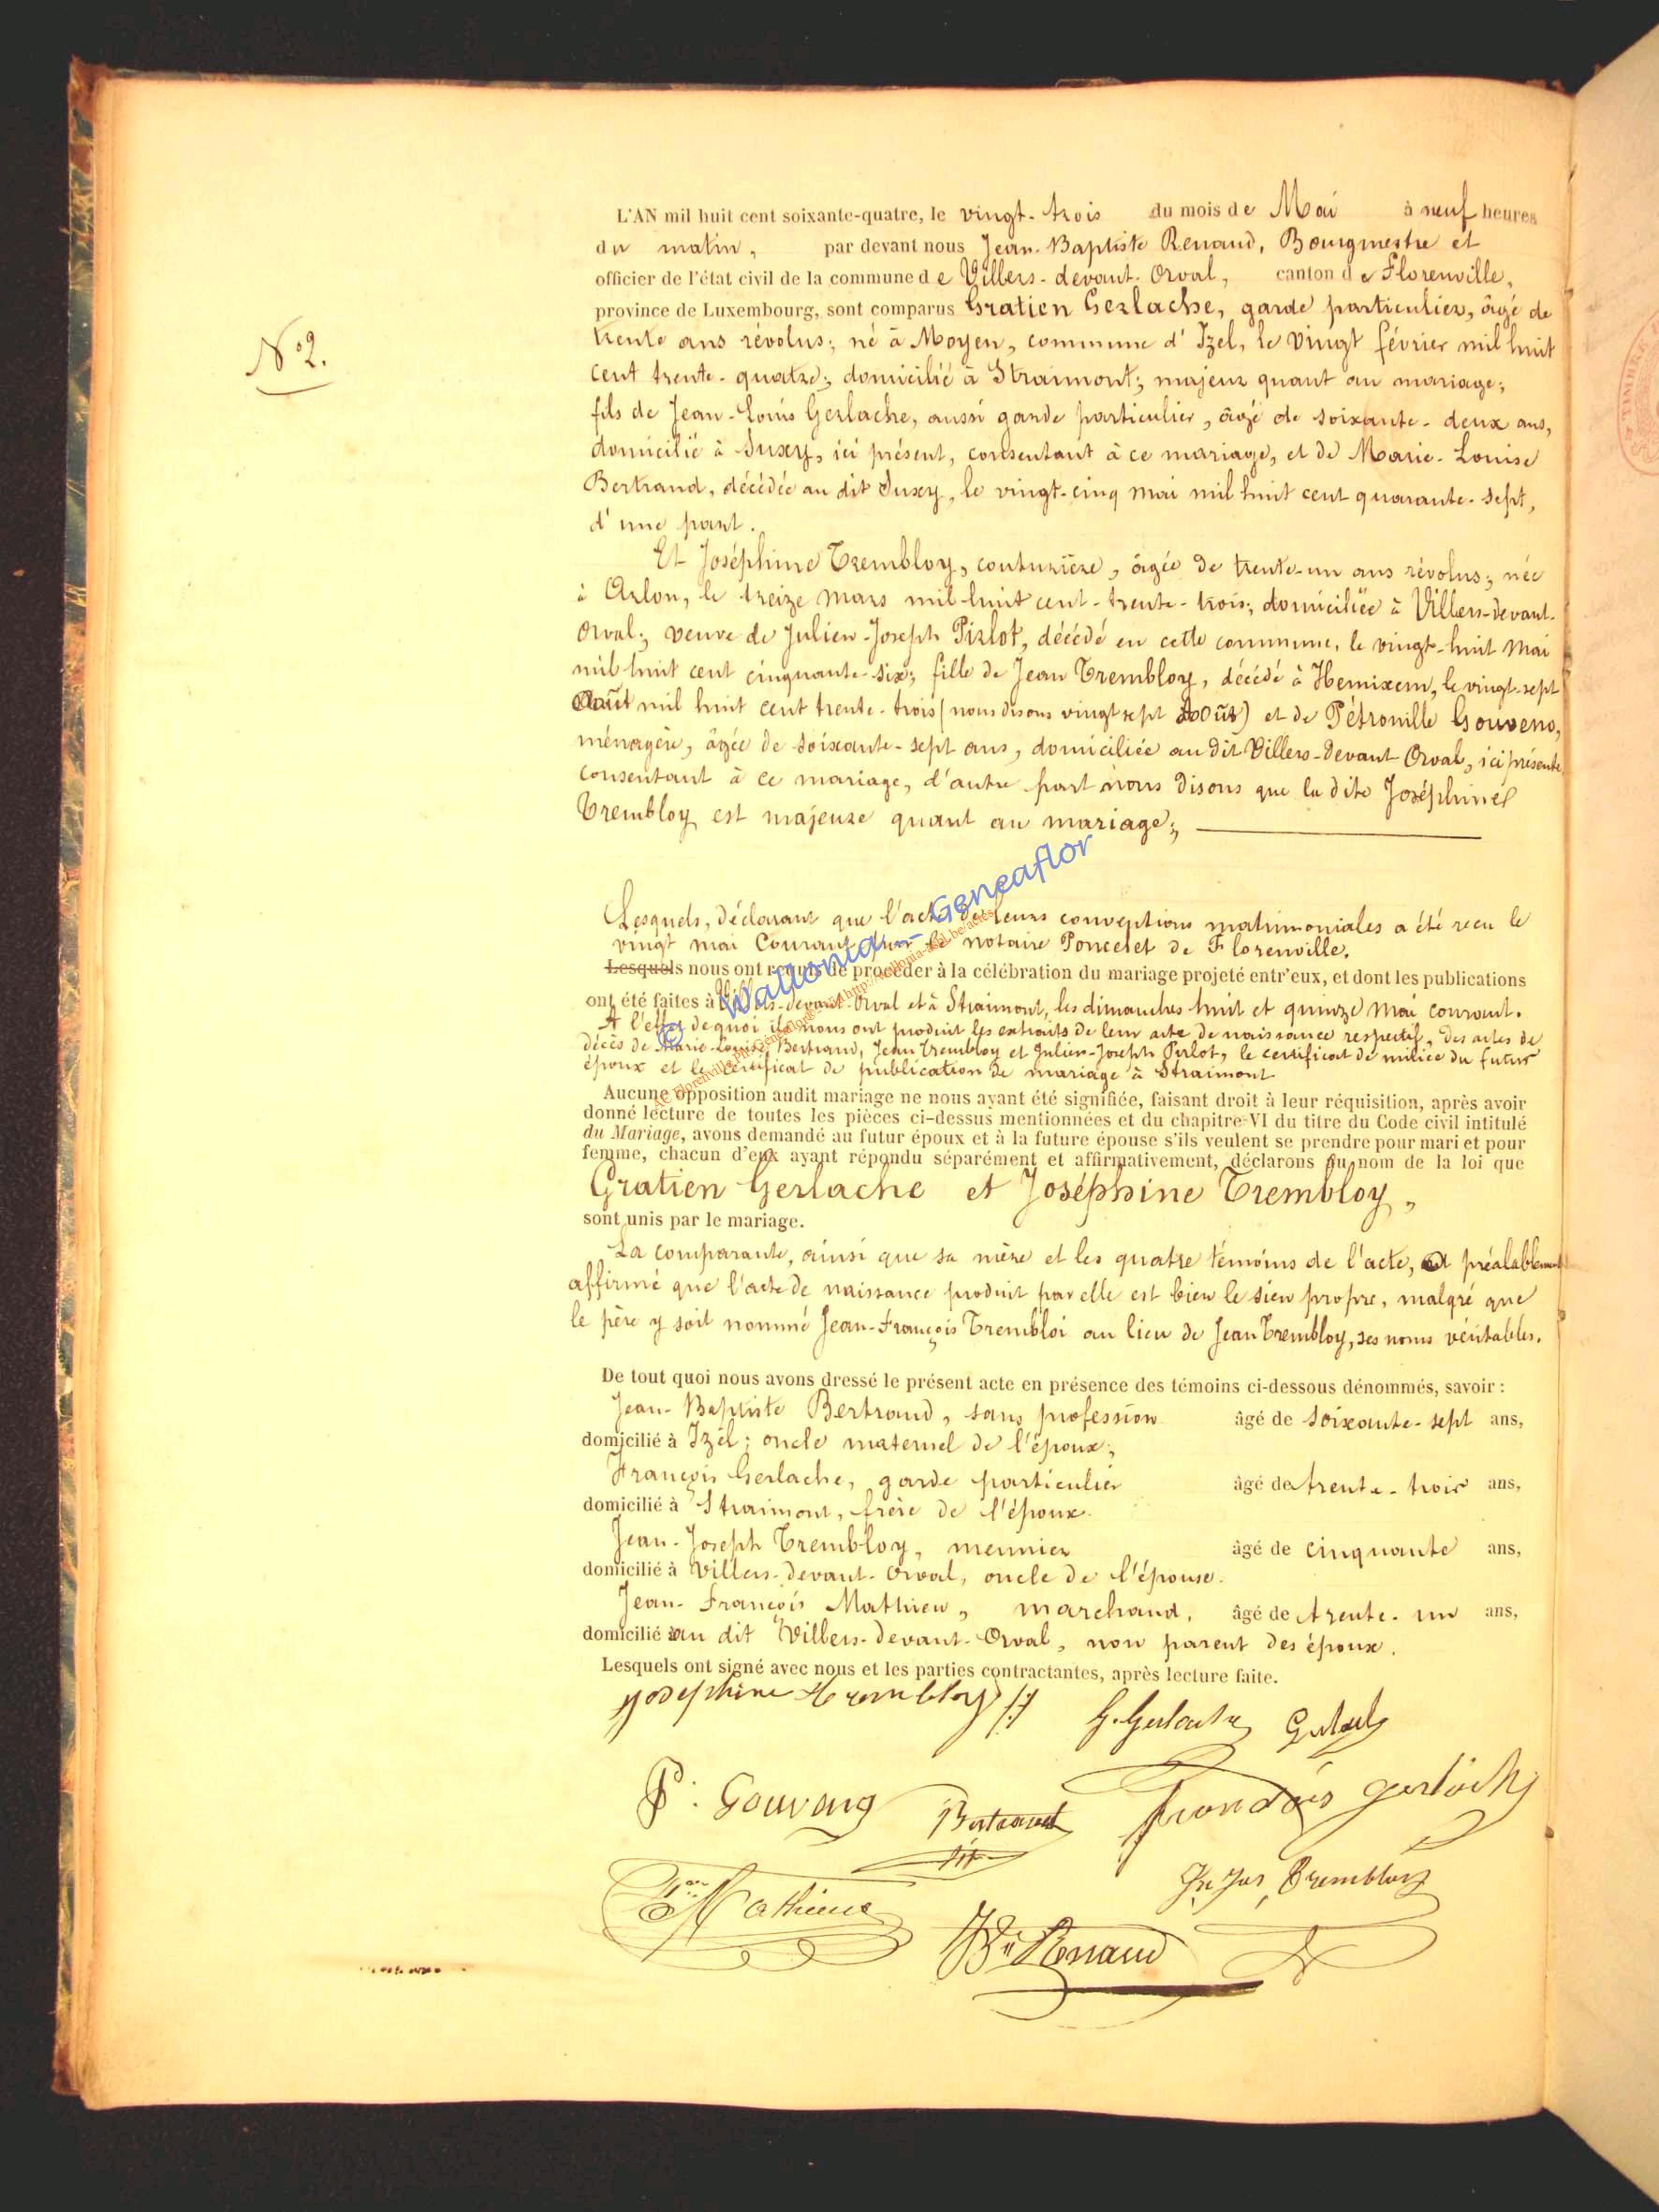 L'AN mil huit cent soixante-quatre, le vingt-trois du mois de Mai à neuf heures
du matin, par devant nous Jean-Baptiste Renaud, Bourgmestre et
officier de l'état civil de la commune de Villers-devant-Orval, canton de Florenville,
province de Luxembourg, sont comparus Gratien Gerlache, garde particulier, âgé de
trente ans révolus; né à Moyen, commune d'Izel, le vingt février mil huit
N° 2.
cent trente-quatre; domicilié à Straimont; majeur quant au mariage;
fils de Jean-Louis Gerlache, aussi garde particulier, âgé de soixante-deux ans,
domicilié à Suxy, ici présent, consentant à ce mariage, et de Marie-Louise
Bertrand, décédée au dit Suxy, le vingt-cinq mai mil huit cent quarante-sept,
d'une part.
Et Joséphine Trembloy, couturière, âgée de trente-un ans révolus; née
à Arlon, le treize mars mil-huit cent-trente-trois; domiciliée à Villers-devant-
Orval; veuve de Julien-Joseph Pirlot, décédé en cette commune, le vingt-huit Mai
mil huit cent cinquante-six; fille de Jean Trembloy, décédé à Hemixem, le vingt-sept
Août mil huit cent trente-trois (nous disons vingt sept Août) et de Pétronille Gouvens,
ménagère, âgée de soixante-sept ans, domiciliée au dit Villers-devant-Orval, ici présente
consentant à ce mariage, d'autre part nous disons que la dite Joséphine
Trembloy est majeure quant au mariage;
Lesquels, déclarant que l'acte de leurs conventions matrimoniales a été reçu le
vingt mai Courant par le notaire Poncelet de Florenville.
Lesquels nous ont requis de procéder à la célébration du mariage projeté entr'eux, et dont les publications
ont été faites à Villers-devant-Orval et à Straimont, les dimanches huit et quinze Mai courant.
A l'effet de quoi ils nous ont produit les extraits de leur acte de naissance respectif, des actes de
décès de Marie-Louise Bertrand, Jean Trembloy et Julien-Joseph Pirlot, le certificat de milice du futur
époux et le certificat de publication de mariage à Straimont
© Wallonia - Geneaflor
Aucune opposition audit mariage ne nous ayant été signifiée, faisant droit à leur réquisition, après avoir
donné lecture de toutes les pièces ci-dessus mentionnées et du chapitre VI du titre du Code civil intitulé
du Mariage, avons demandé au futur époux et à la future épouse s'ils veulent se prendre pour mari et pour
femme, chacun d'eux ayant répondu séparément et affirmativement, déclarons au nom de la loi que
Gratien Gerlache et Joséphine Trembloy,
sont unis par le mariage.
La comparante, ainsi que sa mère et les quatre témoins de l'acte, a préalablement
affirmé que l'acte de naissance produit par elle est bien le sien propre, malgré que
le père y soit nommé Jean-François Trembloi au lieu de Jean Trembloy, ses noms véritables.
De tout quoi nous avons dressé le présent acte en présence des témoins ci-dessous dénommés, savoir :
Jean-Baptiste Bertrand, sans profession âgé de soixante-sept ans,
domicilié à Izel; oncle maternel de l'époux;
François Gerlache, garde particulier âgé de trente-trois ans,
domicilié à Straimont, frère de l'époux.
Jean-Joseph Trembloy, meunier âgé de cinquante ans,
domicilié à Villers-devant-Orval, oncle de l'épouse.
Jean-François Mathieu, marchand, âgé de trente-un ans,
domicilié au dit Villers-devant-Orval, non parent des époux.
Lesquels ont signé avec nous et les parties contractantes, après lecture faite.
Josephine Trembloy G. Gerlache
P. Gouvens Bertrand francois gerlache
Mathieu Jn Jos Trembloy
JB Renaud